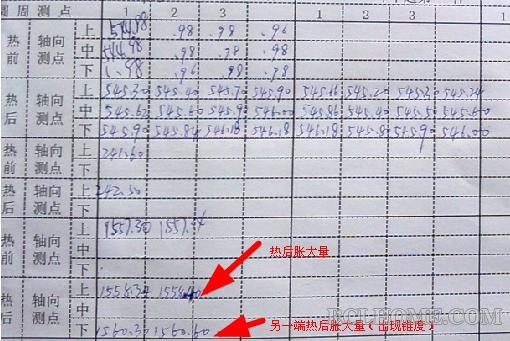 圆周测点 1 2 3 1 2 3
热前 轴向测点 上 544.98 .98 .98 .96
中 544.98 .98 .98 .98
下 .98 .96 .98 .98
热后 轴向测点 上 545.30 545.40 545.70 545.90 545.66 545.20 545.30 545.24
中 545.62 545.60 545.9 546.00 545.86 545.40 545.50 545.60
下 545.90 545.84 546.18 546.18 546.18 545.8 545.90 546.00
热前 轴向测点 上 241.60
下
热后 轴向测点 上 242.50
下
热前 轴向测点 上 1557.30 1557.34
中
下
热后胀大量
热后 轴向测点 上 1558.34
中
下 1560.30 1560.60
另一端热后胀大量（出现锥度）
RCLHOME.COM